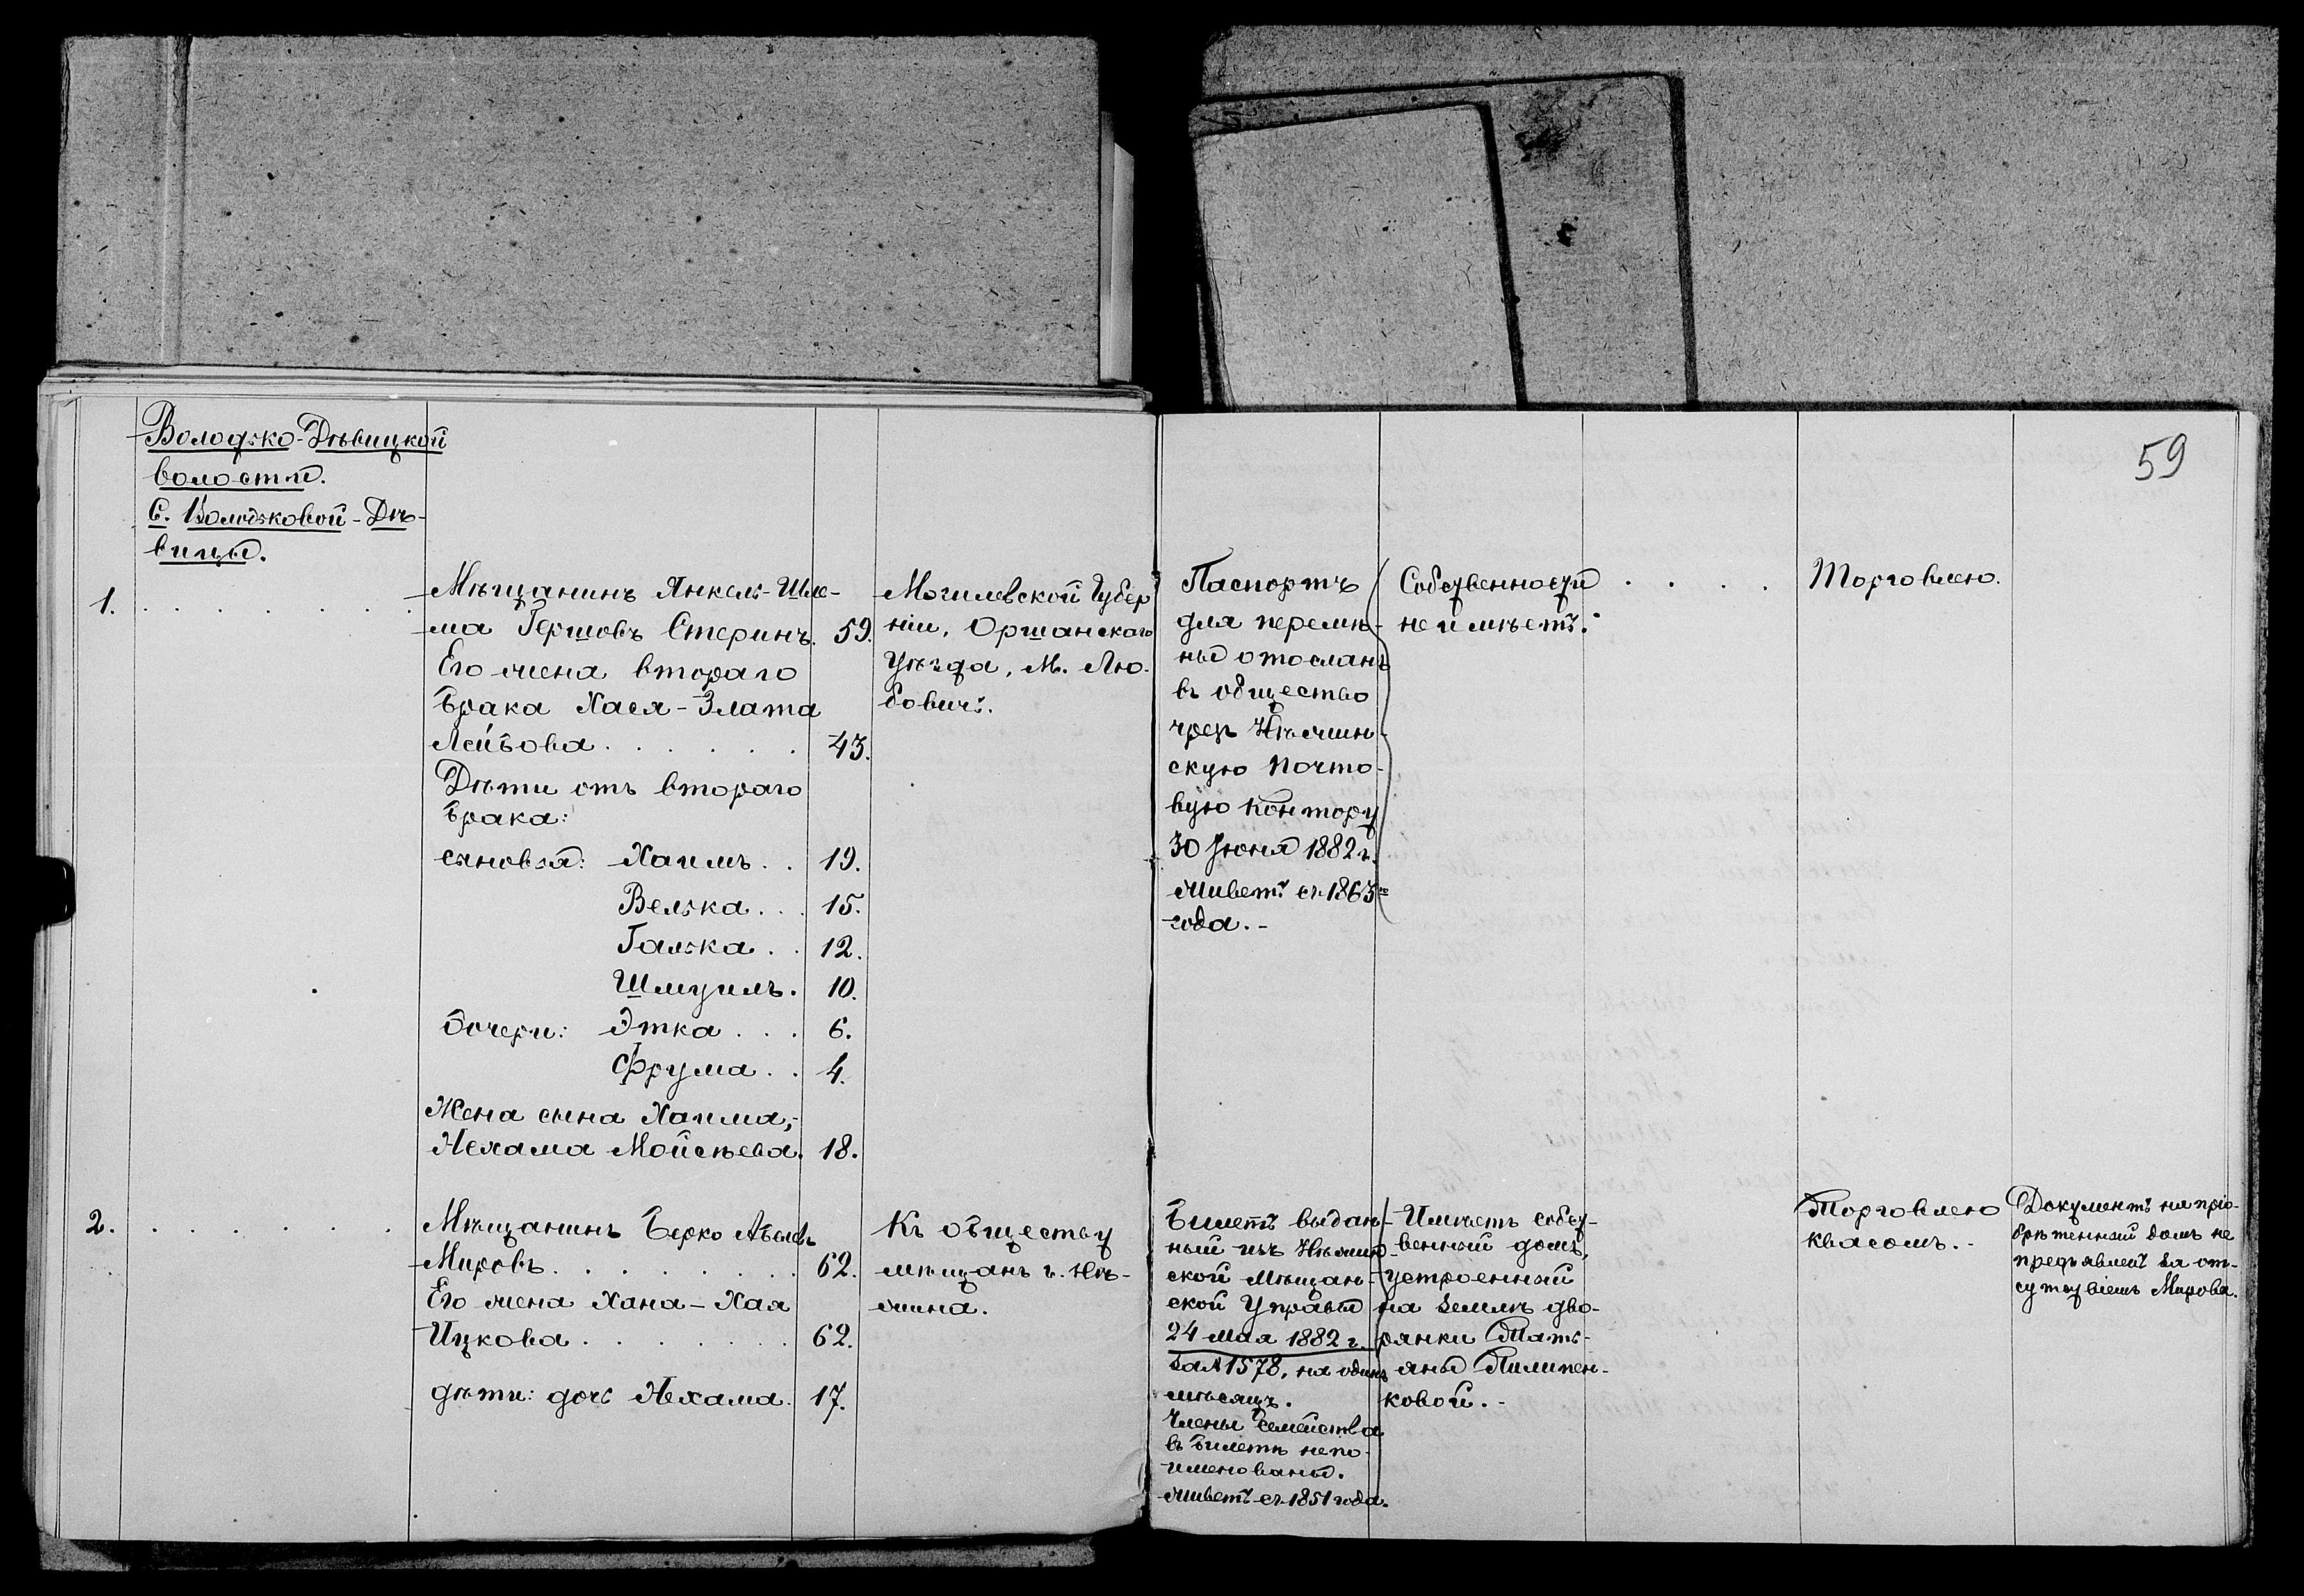 59
Володько-Дѣвицкой
волости.
С. Володьковой-Дѣ-
вицы.
1.
Мѣщанинъ Янкель-Шле-
ма Гершовъ Стеринъ. 59.
Его жена втораго
брака Хася-Злата
Лейбова. . . . . . 43.
Дѣти отъ втораго
брака:
сыновья: Хаимъ. . 19.
Велька. . . 15.
Галька. . 12.
Шмуилъ. 10.
дочери: Этка . . . 6.
Фрума. . 4.
Жена сына Хаима,-
Нехама Мойсѣева. 18.
Могилевской Губер
ніи, Оршанскаго
Уѣзда, М. Лю-
бовичъ.
Паспортъ
для перемѣ-
ны отосланъ
въ общество
чрезъ Нѣжин-
скую почто-
вую контору
30 Іюня 1882 г.
Живетъ съ 1863го
года.-
Собственности
не имѣетъ.
Торговлею.
2.
Мѣщанинъ Берко Абелевъ
Мировъ. . . . . . . . 62.
Его жена Хана-Хая
Ицкова . . . . . . 62.
дѣти: дочь Нехама. 17.
Къ обществу
мѣщанъ г. Нѣ-
жина.
Билетъ выдан-
ный изъ Нѣжин-
ской Мѣщан-
ской Управы
24 мая 1882 г.
за № 1578, на одинъ
мѣсяцъ.
Члены семейства
въ билетѣ не по-
именованы.
Живетъ съ 1851 года.
Имѣетъ собст-
венный домъ,
устроенный
на землѣ дво-
рянки Тать-
яны Пилипен-
ковой.-
Торговлею
квасомъ.-
Документъ на прiо-
брѣтенный домъ не
предъявленъ за от-
сутствіемъ Мирова.